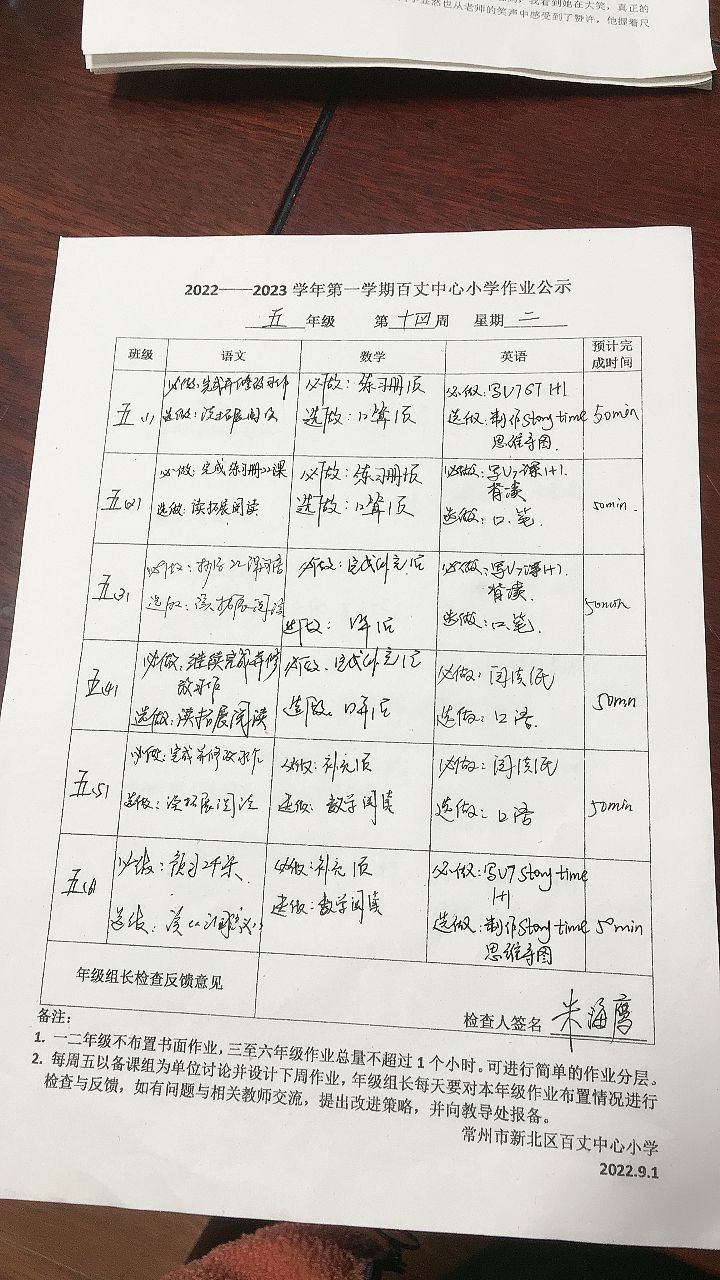 我看到她在大笑，真正的
也从老师的笑声中感受到了赞许，他握着尺
2022——2023 学年第一学期百丈中心小学作业公示
五 年级 第 十四 周 星期 二
班级 语文 数学 英语 预计完成时间
五(1) 必做：完成并修改习作 必做：练习册1页 必做：写U7 ST 1+1 50min
选做：读拓展阅读 选做：口算1页 选做：制作Story time
思维导图
五(2) 必做：完成练习册22课 必做：练习册1页 必做：写U7课1+1 50min.
背读
选做：读拓展阅读 选做：口算1页 选做：口、笔.
五(3) 必做：22课词语 必做：完成补充1页 必做：写U7课1+1. 50min
背读
选做：读拓展阅读 选做：口算1页 选做：口、笔.
五(4) 必做：继续完成并修 必做：完成补充1页 必做：阅读 50min
改习作
选做：读拓展阅读 选做：口算1页 选做：口语.
五(5) 必做：完成并修改习作 必做：补充1页 必做：阅读 50min
选做：读拓展阅读 选做：数学阅读 选做：口语
五(6) 必做：预习 必做：补充1页 必做：写U7 Story time 50min
1+1
选做：读 选做：数学阅读 选做：制作Story time
思维导图
年级组长检查反馈意见
检查人签名 朱海鹰
备注：
1. 一二年级不布置书面作业，三至六年级作业总量不超过 1 个小时。可进行简单的作业分层。
2. 每周五以备课组为单位讨论并设计下周作业，年级组长每天要对本年级作业布置情况进行
检查与反馈，如有问题与相关教师交流，提出改进策略，并向教导处报备。
常州市新北区百丈中心小学
2022.9.1